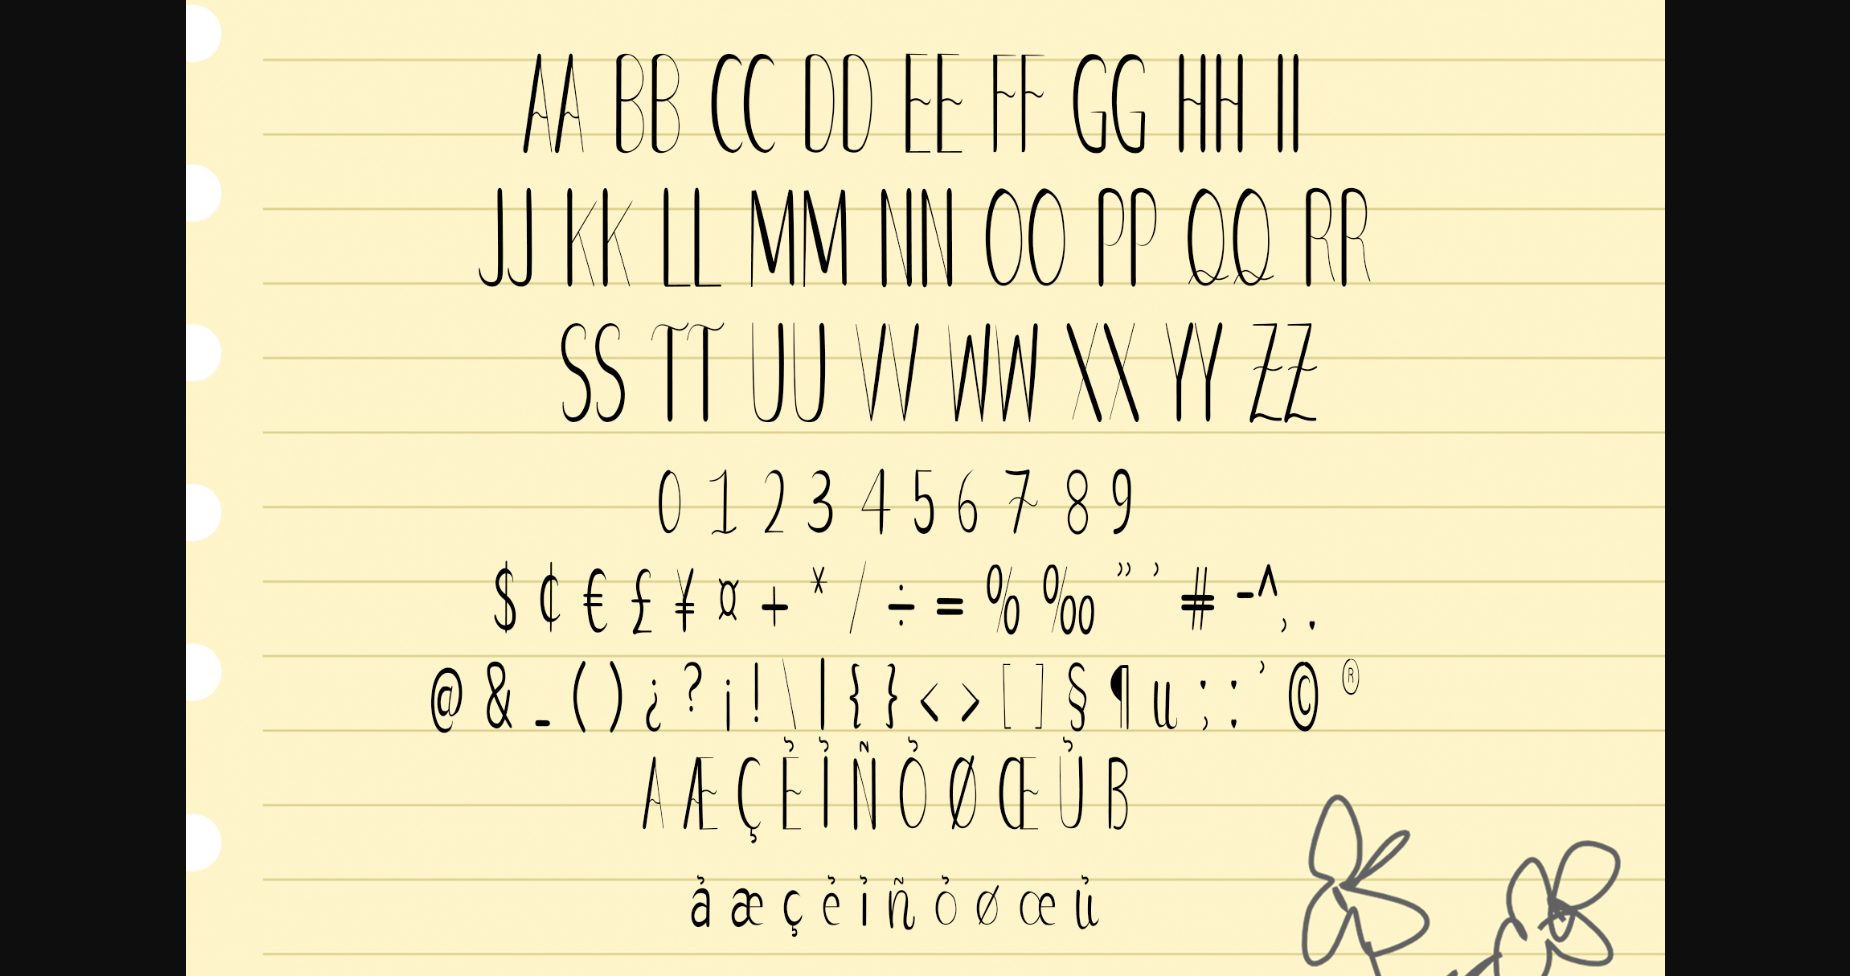 AA BB CC DD EE FF GG HH II
JJ KK LL MM NN OO PP QQ RR
SS TT UU VV WW XX YY ZZ
0 1 2 3 4 5 6 7 8 9
$ ¢ € £ ¥ ¤ + * / ÷ = % ‰ ” ’ # -^, .
@ & _ ( ) ¿ ? ¡ ! \ | { } < > [ ] § ¶ µ ; : ’ © ®
A Æ Ç Ẻ Ỉ Ñ Ỏ Ø Œ Ủ B
ả æ ç ẻ ỉ ñ ỏ ø œ ủ